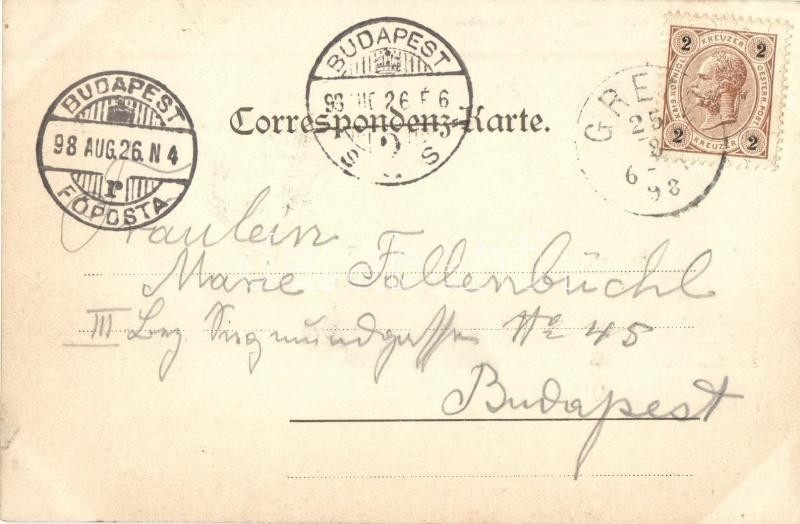 BUDAPEST
98 AUG. 26. N 4
FŐPOSTA
BUDAPEST
98 26 6
2 KREUZER 2
KAIS. KOENIGL. OESTERR. POST
2 KREUZER 2
GRE
6 98
Correspondenz-Karte.
Fräulein
Marie Fallenbüchl
III Bez. Sigmundgasse No 45
Budapest